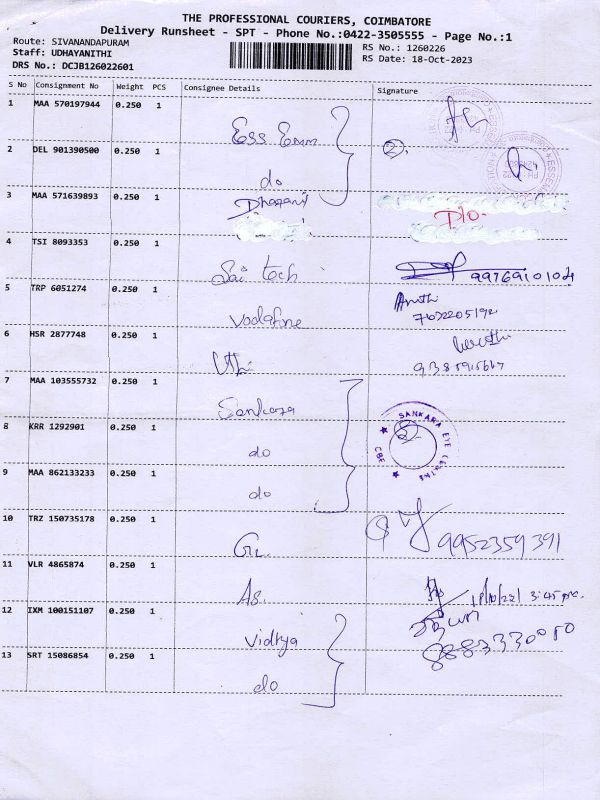 THE PROFESSIONAL COURIERS, COIMBATORE
Delivery Runsheet - SPT - Phone No.:0422-3505555 - Page No.:1
Route: SIVANANDAPURAM
RS No.: 1260226
Staff: UDHAYANITHI
RS Date: 18-Oct-2023
DRS No.: DCJB126022601
S No Consignment No Weight PCS Consignee Details Signature
1 MAA 570197944 0.250 1
Ess Emm
2 DEL 901390500 0.250 1
do
3 MAA 571639893 0.250 1 Dharani
D/o.
4 TSI 8093353 0.250 1
Sai tech 9976910104
5 TRP 6051274 0.250 1
Vodafine
6 HSR 2877748 0.250 1
7 MAA 103555732 0.250 1
Sankara
SANKARA EYE CENTRE CBE
8 KRR 1292901 0.250 1
do
9 MAA 862133233 0.250 1
do
10 TRZ 150735178 0.250 1
9952359391
11 VLR 4865874 0.250 1
As. 3:45 pm.
12 IXM 100151107 0.250 1
Vidhya
8883330010
13 SRT 15086854 0.250 1
do